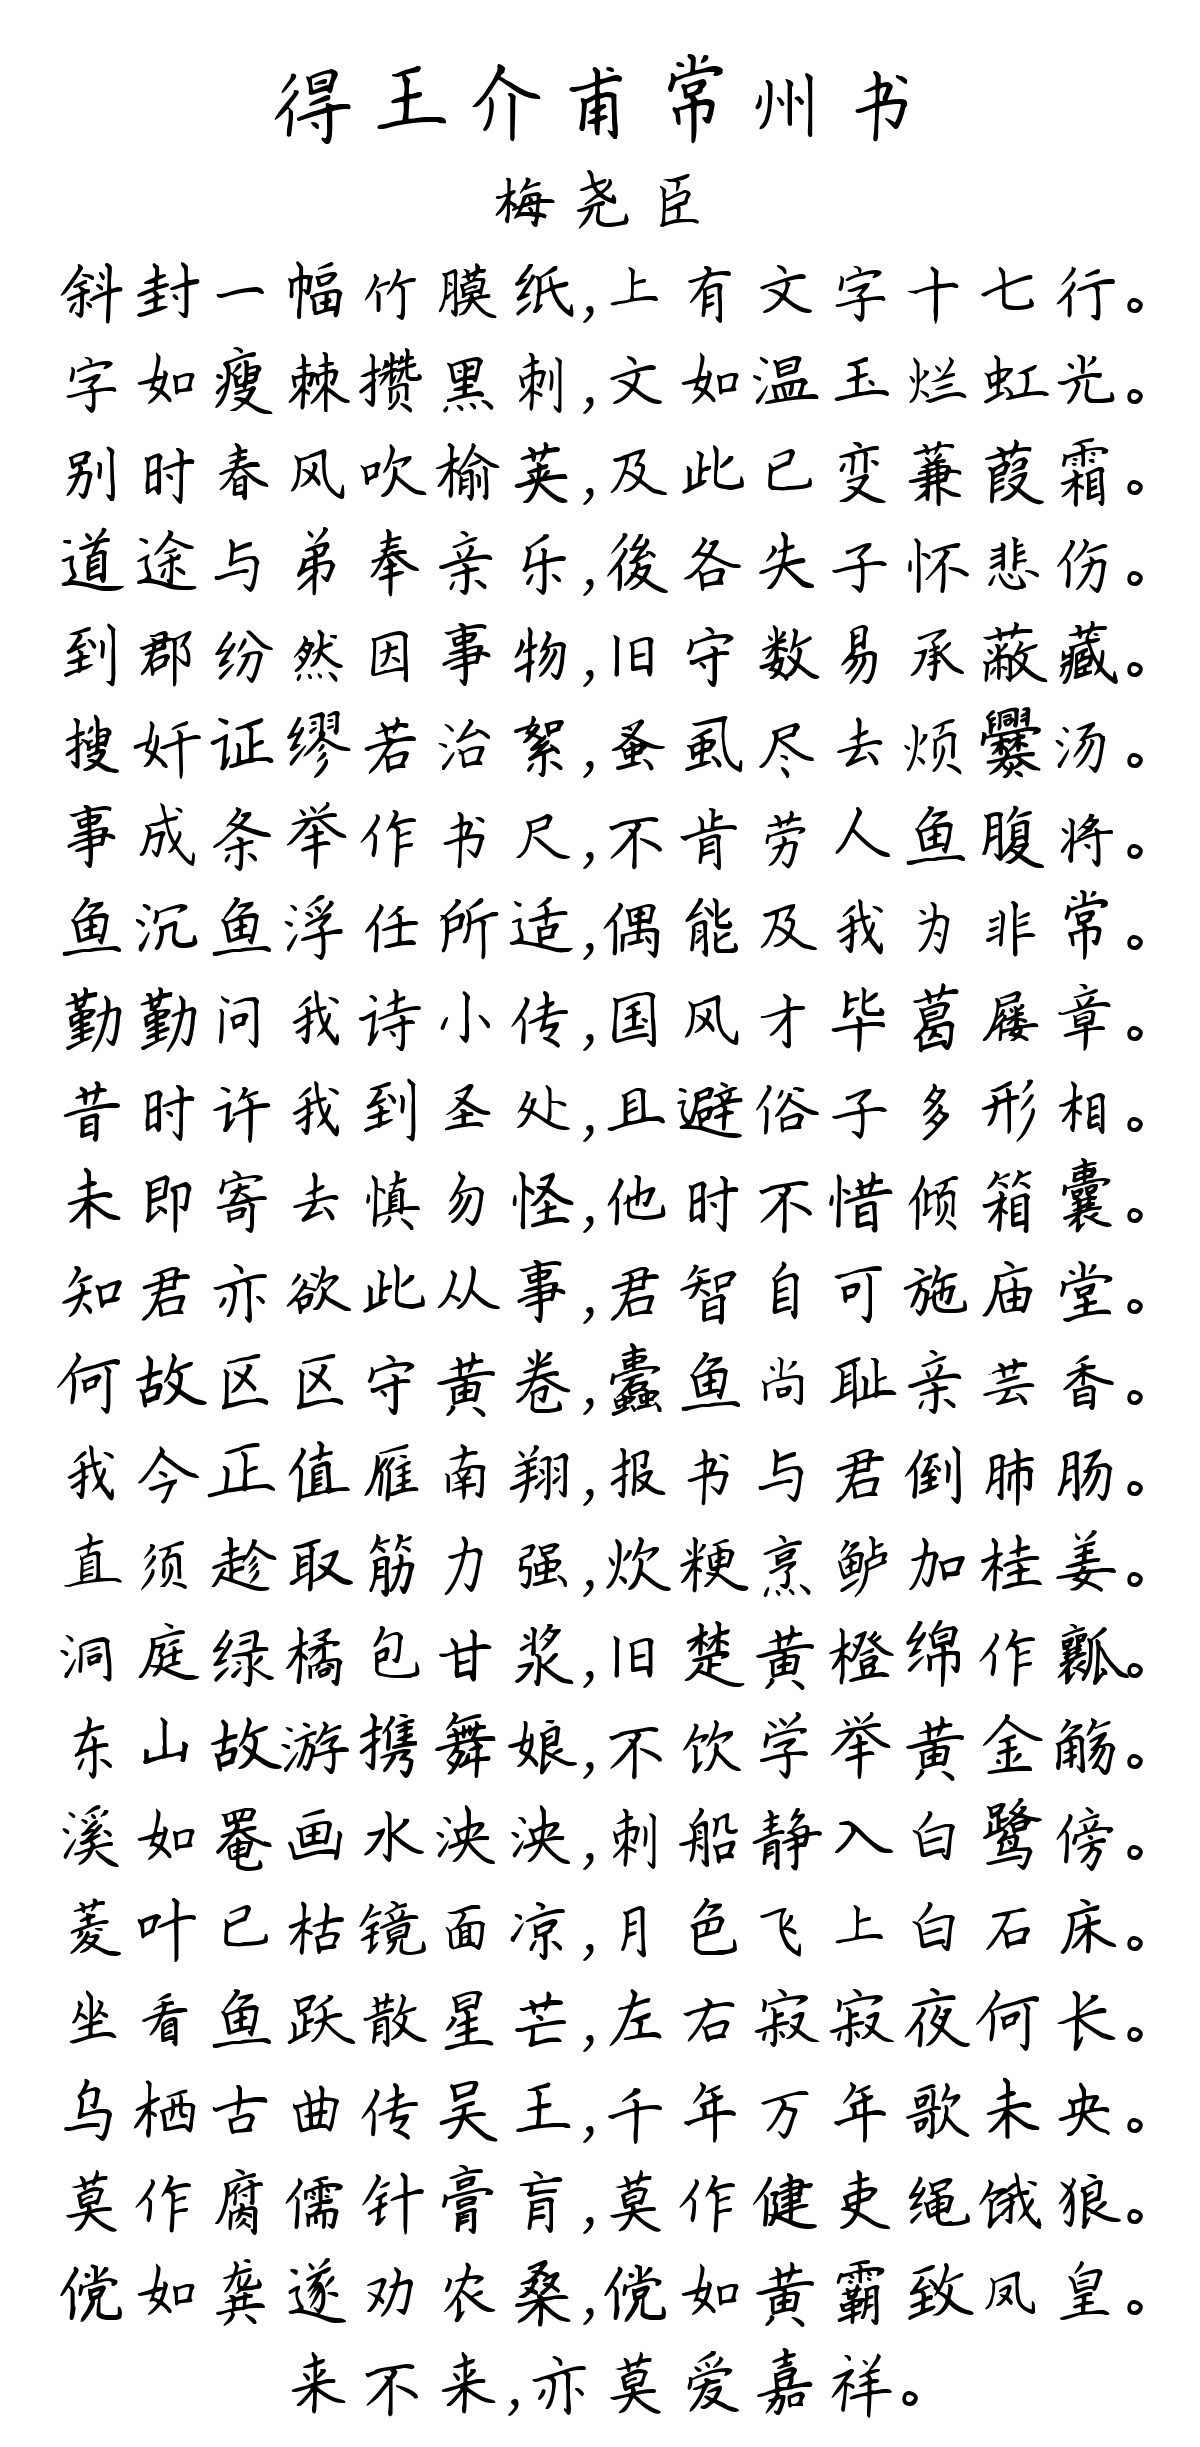 得王介甫常州书
梅尧臣
斜封一幅竹膜纸,上有文字十七行。
字如瘦棘攒黑刺,文如温玉烂虹光。
别时春风吹榆荚,及此已变蒹葭霜。
道途与弟奉亲乐,後各失子怀悲伤。
到郡纷然因事物,旧守数易承蔽藏。
搜奸证缪若治絮,蚤虱尽去烦爨汤。
事成条举作书尺,不肯劳人鱼腹将。
鱼沉鱼浮任所适,偶能及我为非常。
勤勤问我诗小传,国风才毕葛屦章。
昔时许我到圣处,且避俗子多形相。
未即寄去慎勿怪,他时不惜倾箱囊。
知君亦欲此从事,君智自可施庙堂。
何故区区守黄卷,蠹鱼尚耻亲芸香。
我今正值雁南翔,报书与君倒肺肠。
直须趁取筋力强,炊粳烹鲈加桂姜。
洞庭绿橘包甘浆,旧楚黄橙绵作瓤。
东山故游携舞娘,不饮学举黄金觞。
溪如罨画水泱泱,刺船静入白鹭傍。
菱叶已枯镜面凉,月色飞上白石床。
坐看鱼跃散星芒,左右寂寂夜何长。
乌栖古曲传吴王,千年万年歌未央。
莫作腐儒针膏肓,莫作健吏绳饿狼。
傥如龚遂劝农桑,傥如黄霸致凤皇。
来不来,亦莫爱嘉祥。